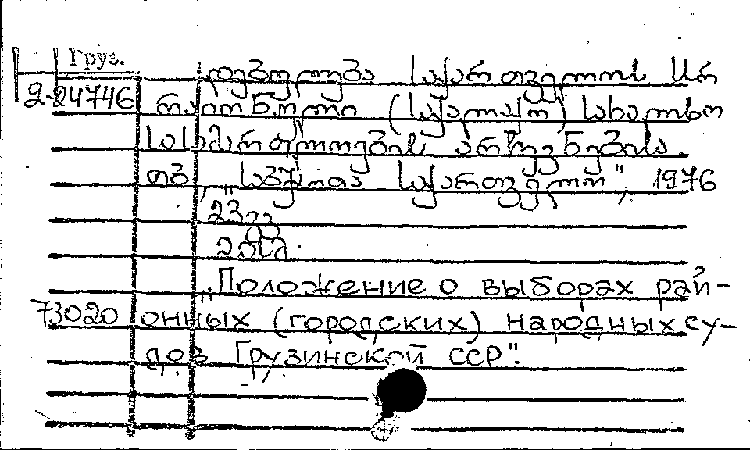 Груз.
დებულება საქართველოს სსრ
2-24746 რაიონული (საქალაქო) სახალხო
სასამართლოების არჩევნების
თბ., „საბჭოთა საქართველო", 1976
23 გვ
„Положение о выборах рай-
73020 онных (городских) народных су-
дов Грузинской ССР".